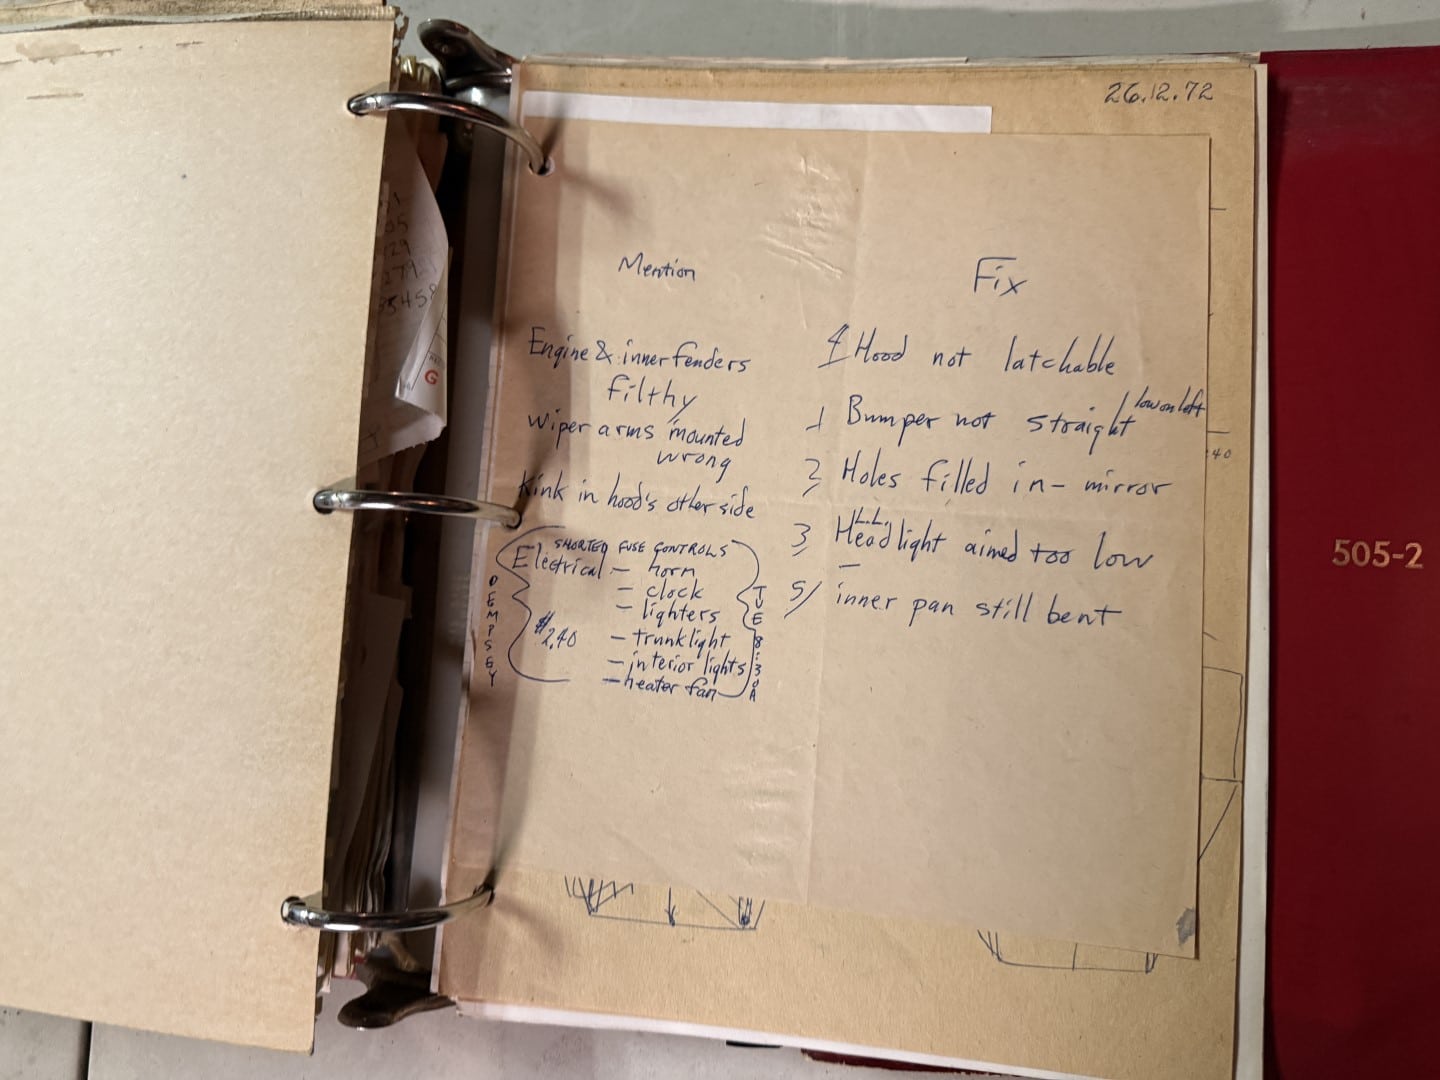 26.12.72
Mention
Engine & inner fenders
filthy
wiper arms mounted
wrong
Kink in hood's other side
SHORTED FUSE CONTROLS
Electrical — horn
— clock
— lighters
$2.40 — trunk light
— interior lights
— heater fan
DEMPSEY
TUE 8:30A
Fix
4 Hood not latchable
1 Bumper not straight / low on left
2 Holes filled in - mirror
L.L.
3 Headlight aimed too low
5/ inner pan still bent
40
279
G
505-2